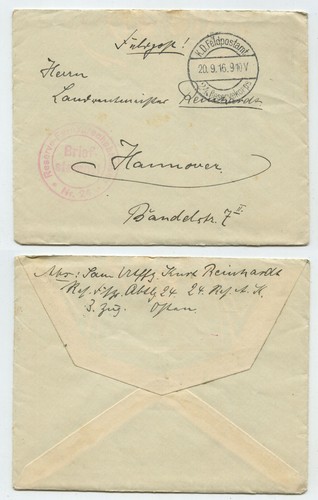 Feldpost!
K.D. Feldpostamt
20.9.16. 9-10 V
Herrn
Landrentmeister Reinhardt
Brief
Hannover.
Bandelstr. 7 II.
Abs: San. Uffz. Kurt Reinhardt
Res. Abtlg. 24. 24. Res. A. K.
3. Zug. Osten